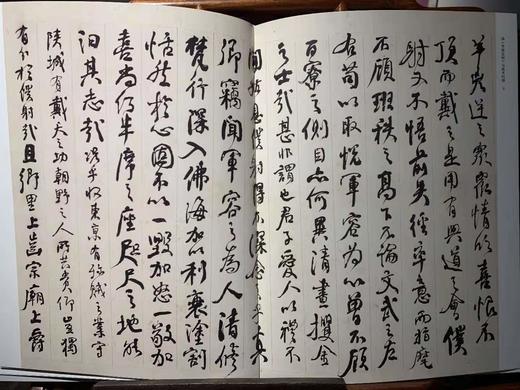 羊兇逆之眾眾情欣喜恨不
頂而戴之是用有興道之會僕
射又不悟前失徑率意而指麾
不顧班秩之高下不論文武之左
右苟以取悅軍容為心曾不顧
百寮之側目亦何異清晝攫金
之士哉甚非謂也君子愛人以禮不
聞姑息僕射得不深念之乎真
卿竊聞軍容之為人清修
梵行深入佛海加以利衰塗割
恬然於心固不以一毀加怒一敬加
喜尚何半席之座咫尺之地能
汩其志哉況乎收東京有殄賊之業守
陝城有戴天之功朝野之人所共貴仰豈獨
有分於僕射哉且鄉里上齒宗廟上爵